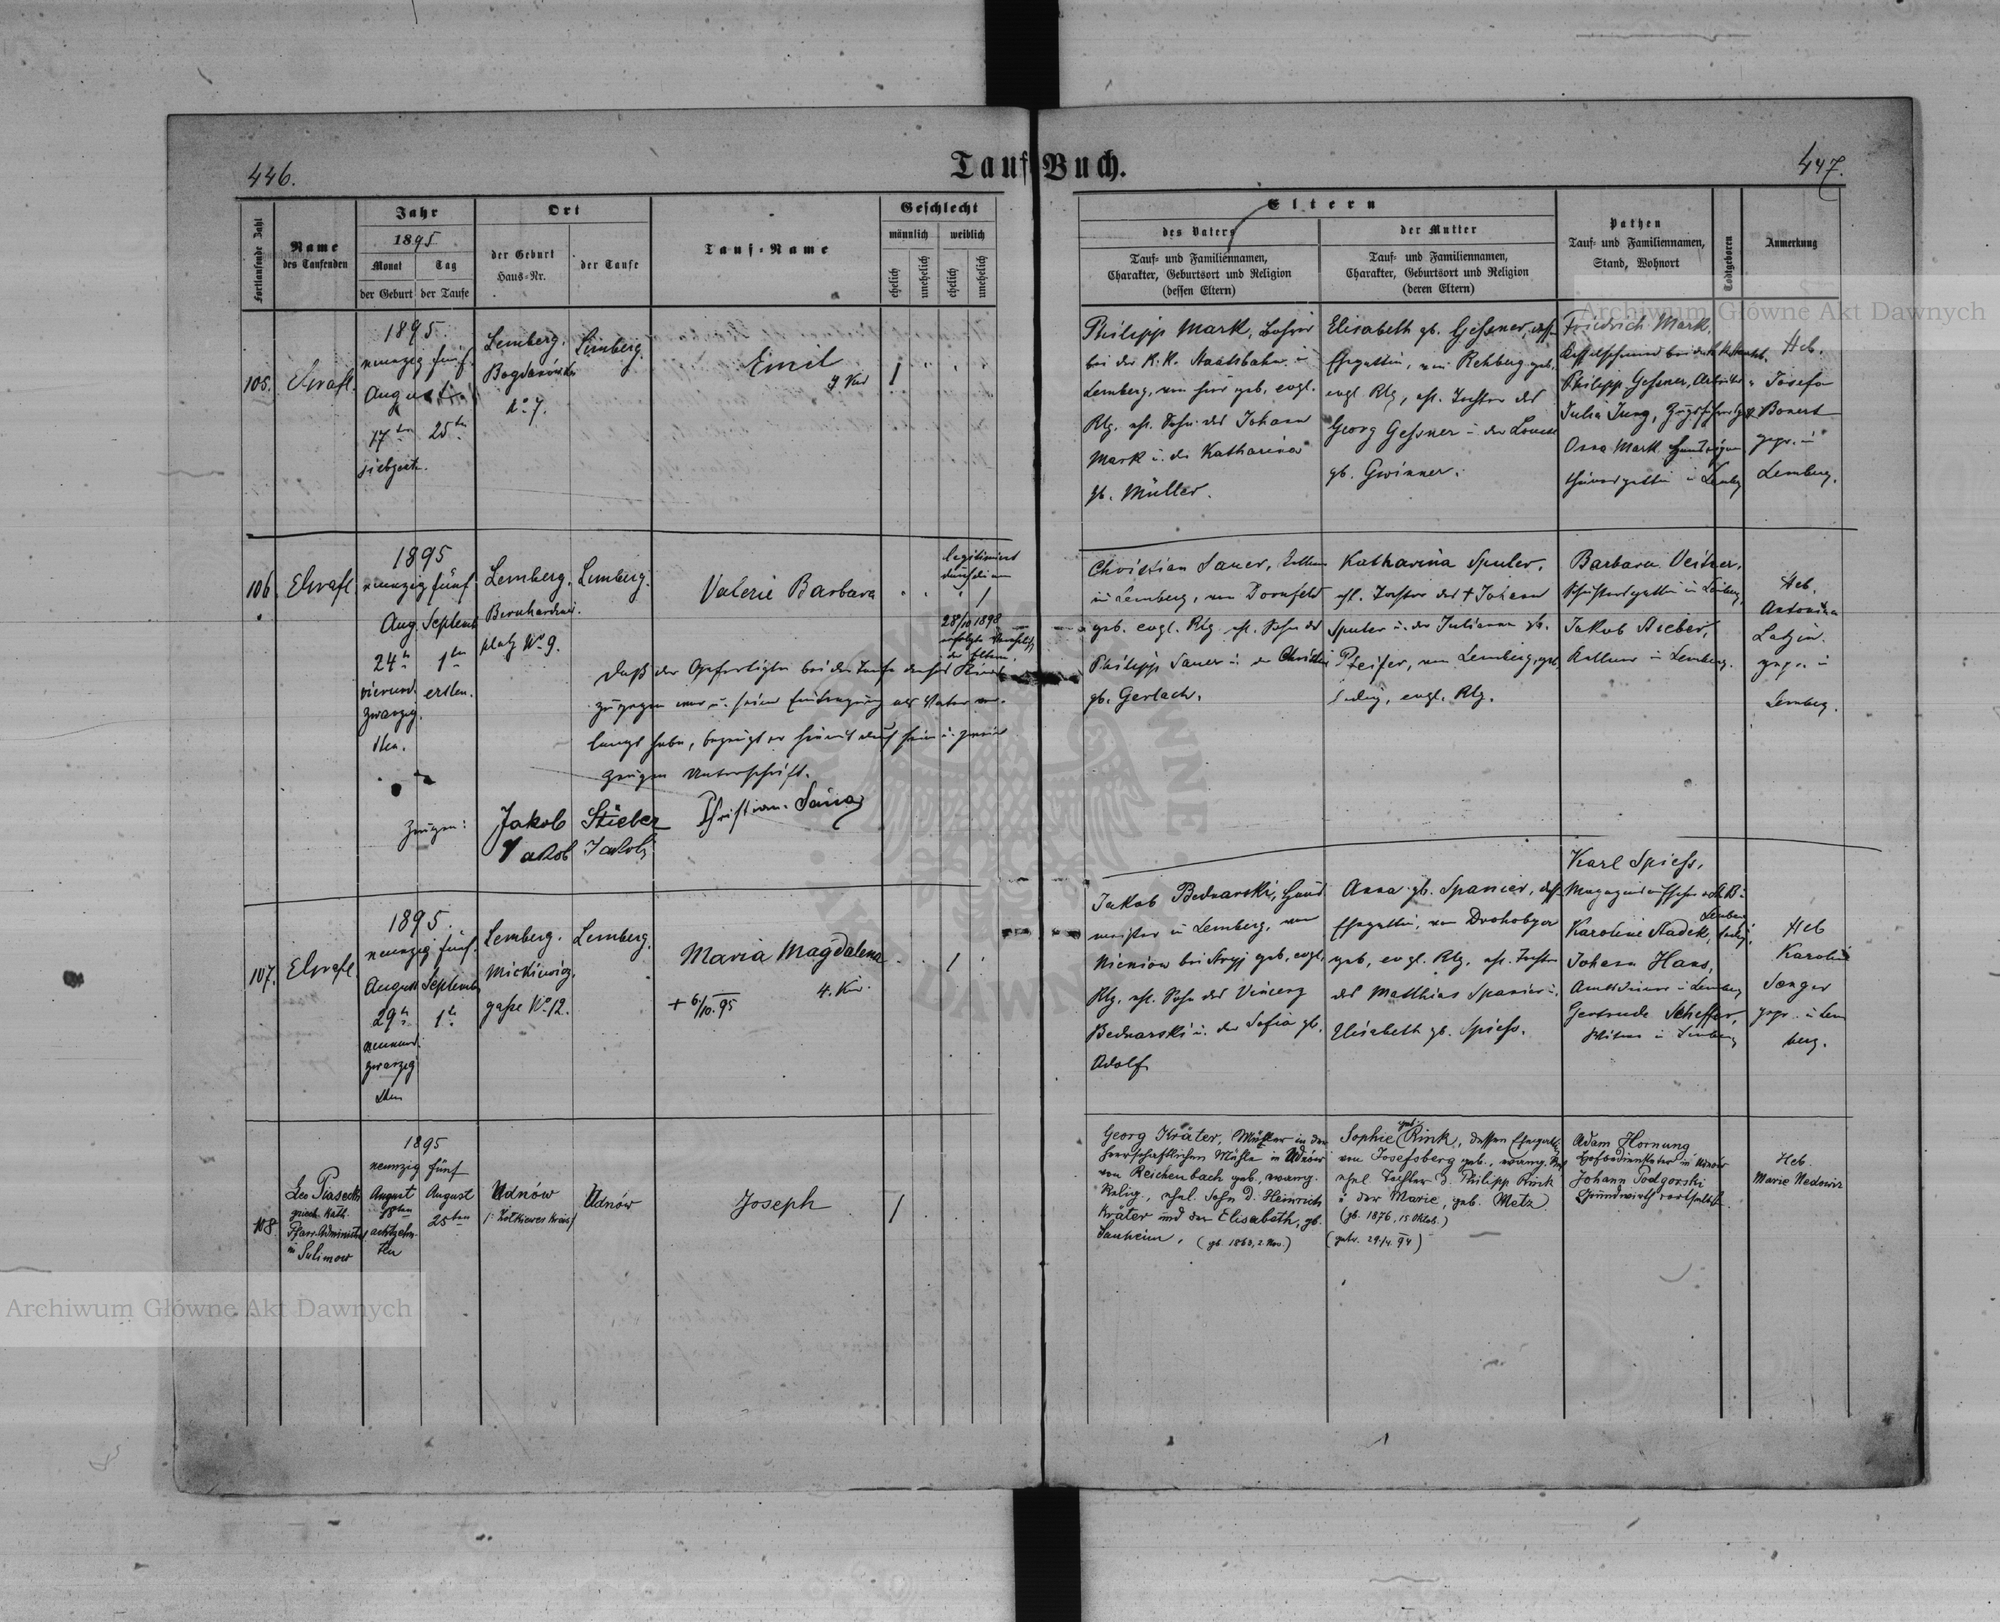 446.
Tauf-Buch.
447.
Fortlaufende Zahl
Name
des Taufenden
Jahr
1895
Monat
Tag
der Geburt
der Taufe
Ort
der Geburt
Haus-Nr.
der Taufe
Tauf-Name
Geschlecht
männlich
weiblich
ehelich
unehelich
ehelich
unehelich
Eltern
des Vaters
Tauf- und Familiennamen,
Charakter, Geburtsort und Religion
(dessen Eltern)
der Mutter
Tauf- und Familiennamen,
Charakter, Geburtsort und Religion
(deren Eltern)
Pathen
Tauf- und Familiennamen,
Stand, Wohnort
Todtgeboren
Anmerkung
Archiwum Główne Akt Dawnych
105.
1895
neunzig fünf
August
17ten 25ten
siebzehn.
Lemberg.
No 7.
Lemberg.
Emil
Philipp Mark,
bei der K. K. Staatsbahn in
Lemberg, von hier geb. evgl.
Rlg. ehl. Sohn des Johann
Mark u. der Katharina
gb. Müller.
Elisabeth gb. Gessner, dess.
Ehegattin, von Rehberg geb.
evgl. Rlg, ehl. Tochter des
Georg Gessner u. der Louise
gb. Gwinner.
Friedrich Mark,
Philipp Gessner,
Julia Jung,
Mark
in Lemberg
Heb.
Josefa
Bonert
gepr. in
Lemberg.
106.
1895
neunzig fünf
Aug. Septemb
24te 1ten
vierund ersten.
zwanzig
sten.
Lemberg.
Bernhardiner
platz No 9.
Lemberg.
Valerie Barbara
legitimiert
durch die am
28/10 1898
erfolgte
der Eltern.
Daß der Gefertigte bei der Taufe dieses Kindes
zugegen war u. seine Eintragung als Vater ver-
langt habe, bezeugt er hiermit durch seine u. zweier
Zeugen Unterschrift.
Zeugen:
Jakob Stieber
Jakob Jakobi
Christian Sauer
Christian Sauer,
in Lemberg, von Dornfeld
geb. evgl. Rlg. ehl. Sohn des
Philipp Sauer u. der Christine
gb. Gerlach.
Katharina Sputer,
ehl. Tochter des † Johann
Sputer u. der Julianna gb.
Pfeifer, von Lemberg, geb.
ledig, evgl. Rlg.
Barbara
in Lemberg,
Jakob Stieber,
Kellner in Lemberg.
Heb.
Antonina
gepr. in
Lemberg.
107.
1895
neunzig fünf
August Septemb
29te 1te
neunund
zwanzig
sten
Lemberg.
Mickiewicz
gasse No 12.
Lemberg.
Maria Magdalena
+ 6/10. 95
Jakob Bednarski,
meister in Lemberg, von
bei Stryj geb, evgl.
Rlg. ehl. Sohn des Vincenz
Bednarski u. der Sofia gb.
Adolf
Anna gb. Spanier, dess.
Ehegattin, von Drohobycz
geb, evgl. Rlg. ehl. Tochter
des Matthias Spanier u.
Elisabeth gb. Spiess.
Karl Spiess,
Magazinaufseher
Lemberg
Karoline Stadek, ledig,
Johann Hans,
Amtsdiener in Lemberg
Gertrude Scheffer,
Witwe in Lemberg
Heb
Karoline
Sanger
gepr. in Lem
berg.
108
Leo Piasecki
griech. kath.
Pfarr-Administrat.
in Sulimow
1895
neunzig fünf
August August
18ten 25ten
achtzehn-
ten
Udnów
/: Zołkiewer Kreis:/
Udnów
Joseph
Georg Kräter, Müller in der
herrschaftlichen Mühle in Udnów
von Reichenbach geb., evang.
Relig., ehel. Sohn d. Heinrich
Kräter und der Elisabeth, gb.
Sauheim. (gb. 1863, 2. Nov.)
geb.
Sophie Rink, dessen Ehegattin,
von Josefsberg geb., evang. Rel
ehel. Tochter d. Philipp Rink
u der Marie, geb. Metz
(gb. 1876, 15 Oktob.)
(getr. 29./4. 94)
Adam Hornung
in Udnów
Johann Podgorski
Grundwirth
Heb.
Marie Nedowiz
Archiwum Główne Akt Dawnych